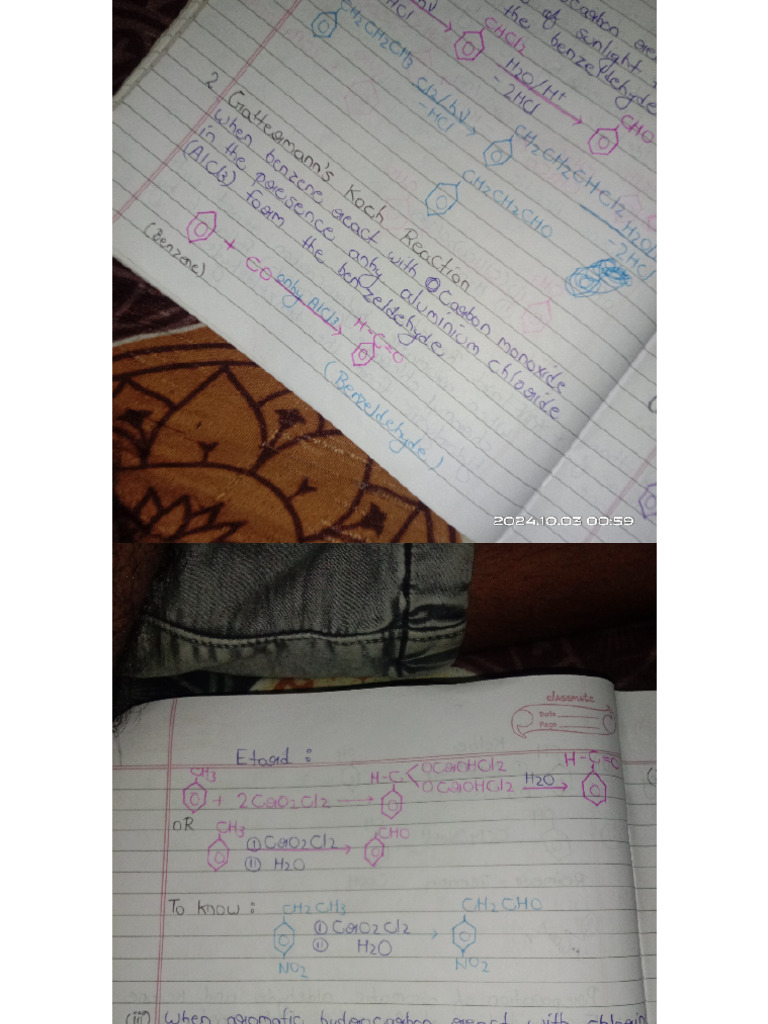 HCl
CHCl2
H2O/H+
- 2HCl
CHO
of sunlight
the benzeldehyde
CH2CH2CH3
Cl2/hν
-HCl
CH2CH2CHCl2
H2O/
-2HCl
CH2CH2CHO
2 Gattermann's Koch Reaction
When benzene react with Carbon monoxide
in the presence anhy aluminium chloride
(AlCl3) form the benzeldehyde
+ CO anhy AlCl3
H-C=O
(Benzene)
(Benzeldehyde)
2024.10.03 00:59
classmate
Date
Page
Etard :
CH3
+ 2CrO2Cl2
H-C
OCrOHCl2
OCrOHCl2
H2O
H-C=O
OR
CH3
(i) CrO2Cl2
(ii) H2O
CHO
To know :
CH2CH3
(i) CrO2Cl2
(ii) H2O
NO2
CH2CHO
NO2
(iii) When aromatic hydrocarbon react with chlorin